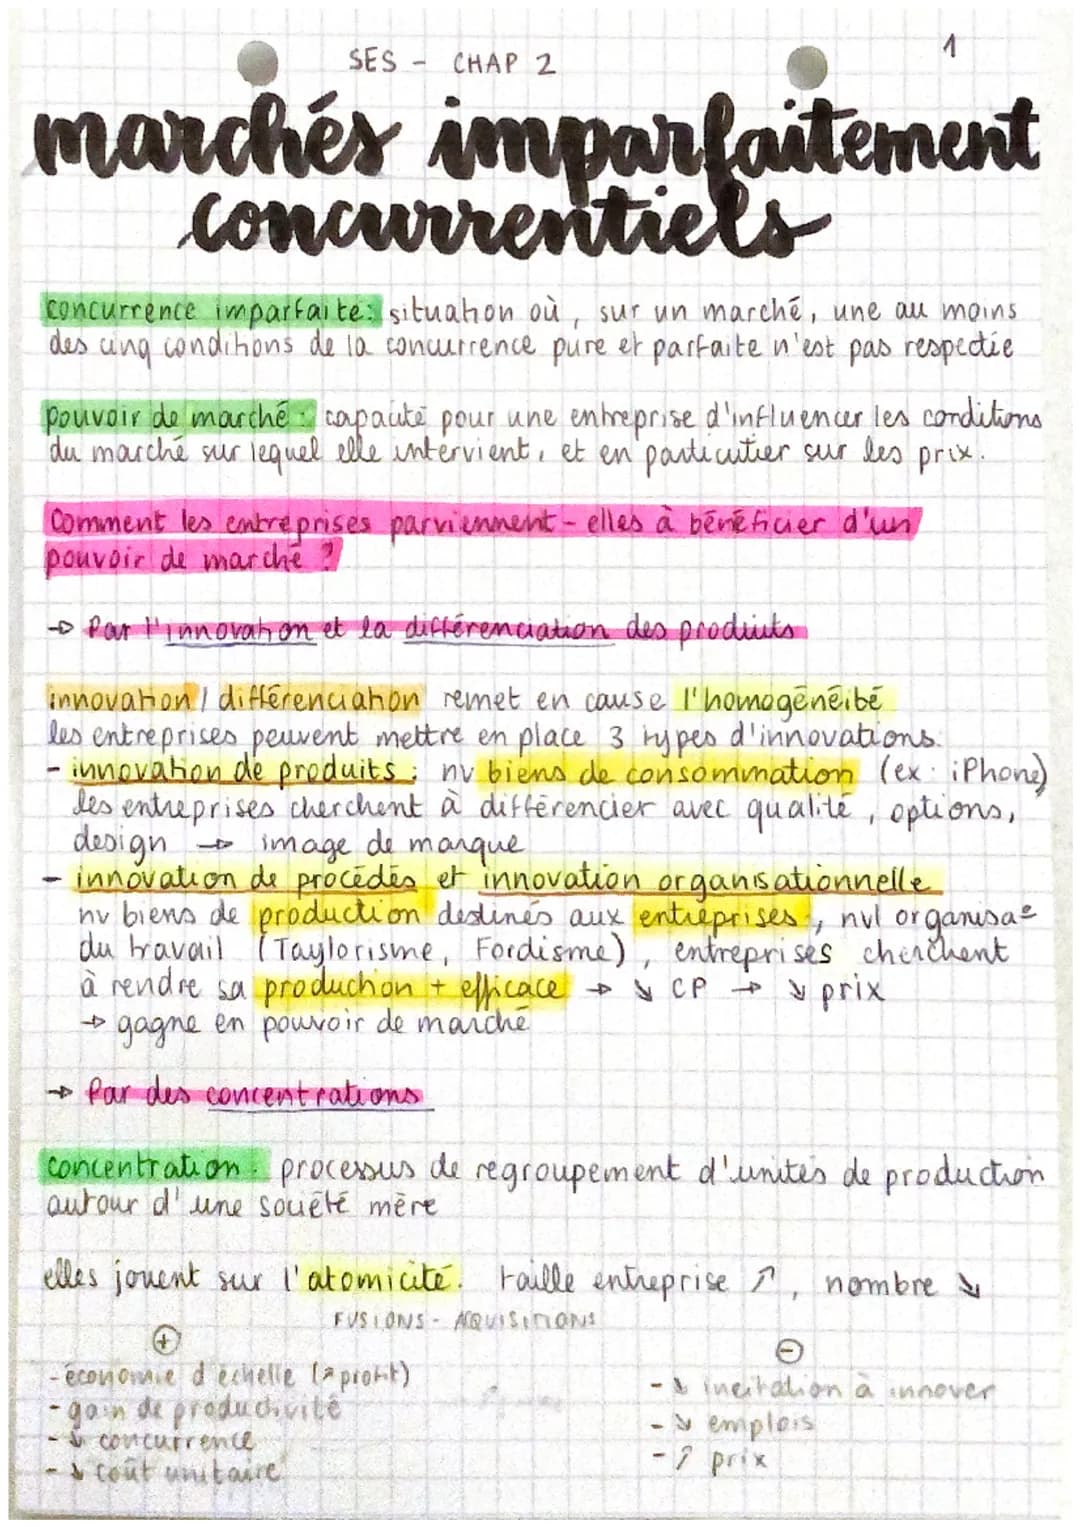 SES - CHAP 2
1
marchés imparfaitement
concurrentiels
concurrence imparfaite : situation où, sur un marché, une au moins
des cinq conditions de la concurrence pure et parfaite n'est pas respectée
pouvoir de marché : capacité pour une entreprise d'influencer les conditions
du marché sur lequel elle intervient, et en particulier sur les prix.
Comment les entreprises parviennent-elles à bénéficier d'un
pouvoir de marché ?
→ Par l'innovation et la différenciation des produits
innovation / différenciation remet en cause l'homogénéité
les entreprises peuvent mettre en place 3 types d'innovations.
- innovation de produits : nv biens de consommation (ex : iPhone)
les entreprises cherchent à différencier avec qualité, options,
design → image de marque
- innovation de procédés et innovation organisationnelle
nv biens de production destinés aux entreprises, nvl organisa°
du travail (Taylorisme, Fordisme), entreprises cherchent
à rendre sa production + efficace → ↘ CP → ↘ prix
→ gagne en pouvoir de marché
→ Par des concentrations
concentration : processus de regroupement d'unités de production
autour d'une société mère
elles jouent sur l'atomicité. taille entreprise ↗, nombre ↘
FUSIONS - AQUISITIONS
+
- économie d'échelle (↗ profit)
- gain de productivité
- ↘ concurrence
- ↘ coût unitaire
-
- ↘ incitation à innover
- ↘ emplois
- ↗ prix